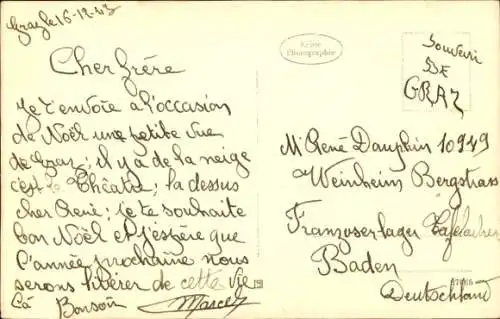 Graz le 16-12-43
Cher frère
Je t'envoie à l'occasion
de Noël une petite vue
de Graz; il y a de la neige
c'est le Théatre; la dessus
cher René; je te souhaite
bon Noël et j'espère que
l'année prochaine nous
serons libérer de cette vie
là Bonsoir Marcel
Echte
Photographie
Souvenir
DE
GRAZ
Mr René Dauphin 10949
Weinheim Bergstrass
Franzoser lager
Baden
Deutschland